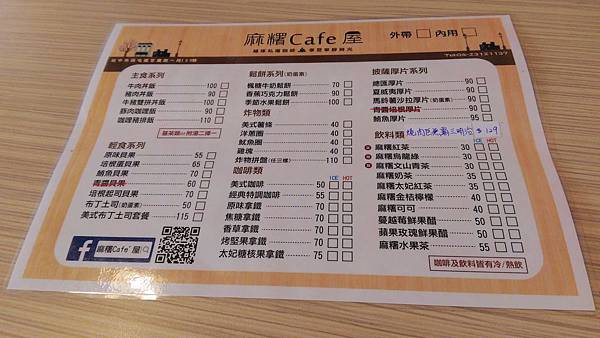 麻糬Cafe屋
外帶 內用
主食系列
牛肉丼飯 100
豬肉丼飯 90
牛豬雙拼丼飯 100
豚肉咖哩飯 90
咖哩豬排飯 110
輕食系列
原味貝果 55
培根蛋貝果 65
鮪魚貝果 70
青醬貝果 60
培根起司貝果 70
布丁土司(奶蛋素) 50
美式布丁土司套餐 115
麻糬Cafe'屋
鬆餅系列(奶蛋素)
楓糖牛奶鬆餅 70
香蕉巧克力鬆餅 90
季節水果鬆餅 100
炸物類
美式薯條 40
洋蔥圈 40
魷魚圈 40
雞塊 40
炸物拼盤(任三樣) 110
咖啡類 ICE HOT
美式咖啡 50
經典特調咖啡 55
原味拿鐵 50
焦糖拿鐵 70
香草拿鐵 70
烤堅果拿鐵 70
太妃糖核果拿鐵 75
披薩厚片系列
總匯厚片 90
夏威夷厚片 90
馬鈴薯沙拉厚片(奶蛋素) 90
青醬培根厚片
鮪魚厚片 95
飲料類 燒肉巨無霸三明治 $129
ICE HOT
麻糬紅茶 30
麻糬烏龍綠 30
麻糬文山青茶 30
麻糬奶茶 35
麻糬太妃紅茶 35
麻糬金桔檸檬 40
麻糬可可 40
蔓越莓鮮果醋 50
蘋果玫瑰鮮果醋 50
麻糬水果茶 55
咖啡及飲料皆有冷/熱飲